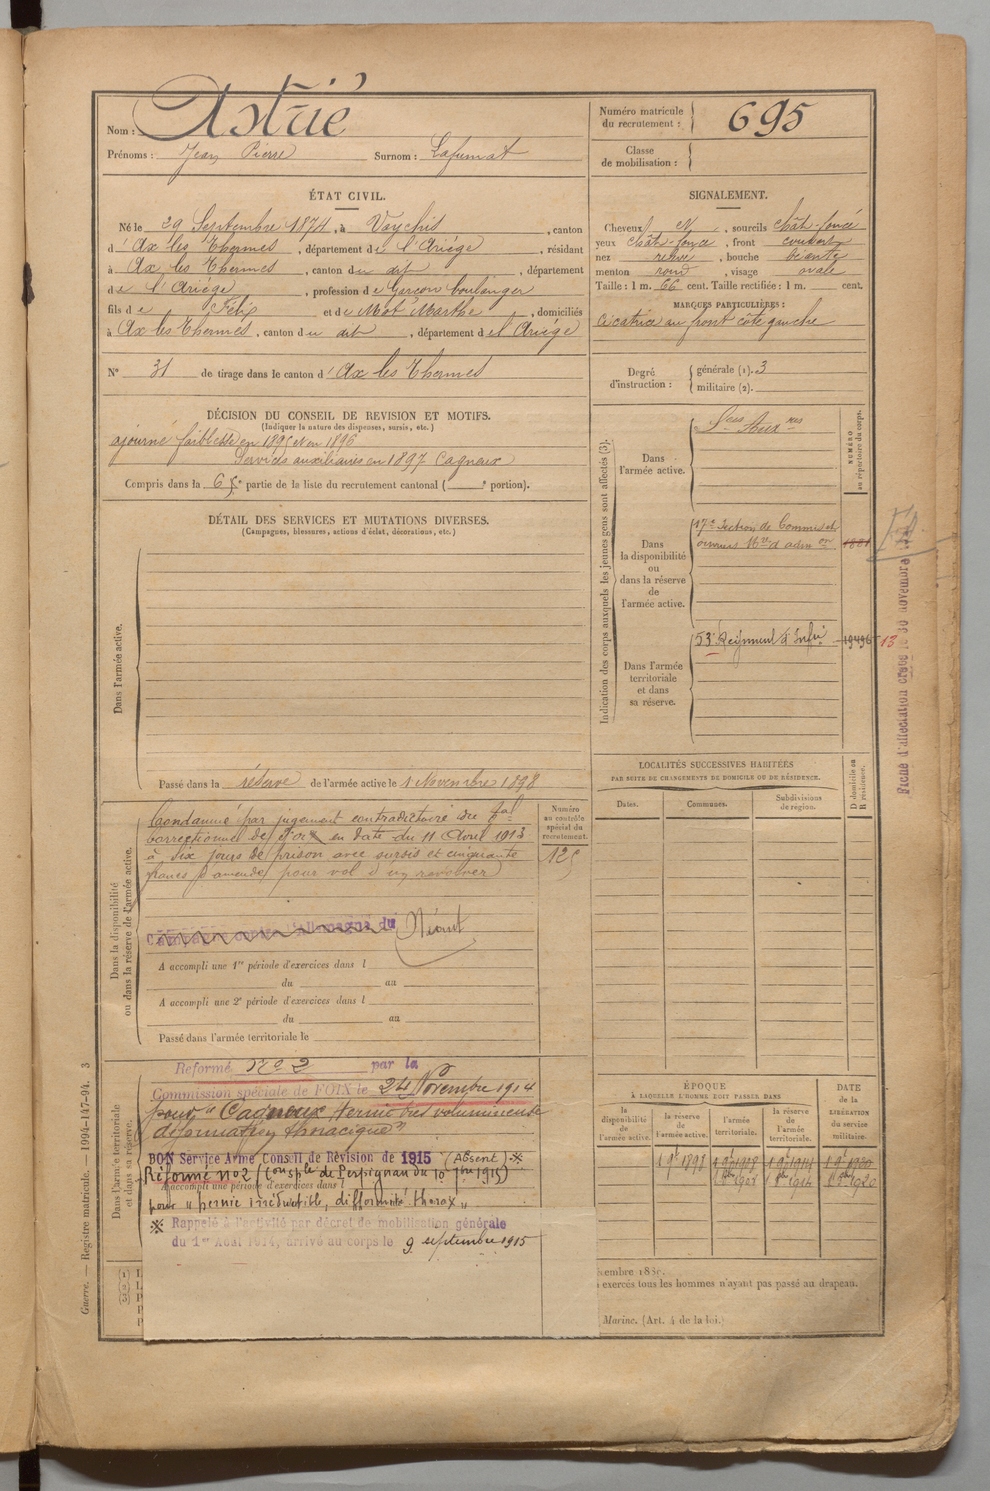 Nom : Astrié
Prénoms : Jean Pierre Surnom : Lafumat
Numéro matricule du recrutement : 695
Classe de mobilisation :
ÉTAT CIVIL.
Né le 29 Septembre 1874, à Vaychis, canton
d'Ax les Thermes, département de l'Ariège, résidant
à Ax les Thermes, canton du dit, département
de l'Ariège, profession de Garçon boulanger
fils de Félix et de Mot Marthe, domiciliés
à Ax les Thermes, canton du dit, département de l'Ariège
N° 31 de tirage dans le canton d'Ax les Thermes
SIGNALEMENT.
Cheveux et, sourcils chât-foncé
yeux chât-foncé, front couvert
nez, bouche béante
menton rond, visage ovale
Taille : 1 m. 66 cent. Taille rectifiée : 1 m. cent.
MARQUES PARTICULIÈRES :
Cicatrice au front côté gauche
Degré d'instruction : générale (1). 3
militaire (2).
DÉCISION DU CONSEIL DE REVISION ET MOTIFS.
(Indiquer la nature des dispenses, sursis, etc.)
ajourné faiblesse en 1895 et en 1896
Services auxiliaires en 1897 Cagneux
Compris dans la 6e partie de la liste du recrutement cantonal ( e portion).
DÉTAIL DES SERVICES ET MUTATIONS DIVERSES.
(Campagnes, blessures, actions d'éclat, décorations, etc.)
Dans l'armée active.
Passé dans la réserve de l'armée active le 1 Novembre 1898
Dans la disponibilité ou dans la réserve de l'armée active.
Condamné par jugement contradictoire du Tal
correctionnel de Foix en date du 11 Avril 1913
à six jours de prison avec sursis et cinquante
francs d'amende pour vol d'un revolver
Numéro au contrôle spécial du recrutement.
125
Campagne contre l'Allemagne du Néant
A accompli une 1re période d'exercices dans l
du au
A accompli une 2e période d'exercices dans l
du au
Passé dans l'armée territoriale le
Dans l'armée territoriale et dans sa réserve.
Reformé No 2 par la
Commission spéciale de FOIX le 24 Novembre 1914
pour "Cagneux hernie très volumineuse
déformation thoracique"
BON Service Armé Conseil de Révision de 1915 (Absent) ※
Réformé no 2 (Con sple de Perpignan du 10 1915)
A accompli une période d'exercices dans l
pour "hernie irréductible, difformité thorax"
※ Rappelé à l'activité par décret de mobilisation générale
du 1er Août 1914, arrivé au corps le 9 septembre 1915
Indication des corps auxquels les jeunes gens sont affectés (3).
NUMÉRO au répertoire du corps.
Dans l'armée active.
Sces Auxres
Dans la disponibilité ou dans la réserve de l'armée active.
17e Section de Commis et
ouvriers Mres d'admon
Dans l'armée territoriale et dans sa réserve.
53e Régiment d'Infie
13
Fiche d'affectation créée le 30 novembre
LOCALITÉS SUCCESSIVES HABITÉES
PAR SUITE DE CHANGEMENTS DE DOMICILE OU DE RÉSIDENCE.
Dates.
Communes.
Subdivisions de région.
D domicile ou R résidence.
ÉPOQUE
À LAQUELLE L'HOMME DOIT PASSER DANS
la disponibilité de l'armée active.
la réserve de l'armée active.
l'armée territoriale.
la réserve de l'armée territoriale.
DATE de la LIBÉRATION du service militaire.
1 9e 1898
Guerre. — Registre matricule. — 1994-147-94. 3
exercés tous les hommes n'ayant pas passé au drapeau.
Marine. (Art. 4 de la loi.)